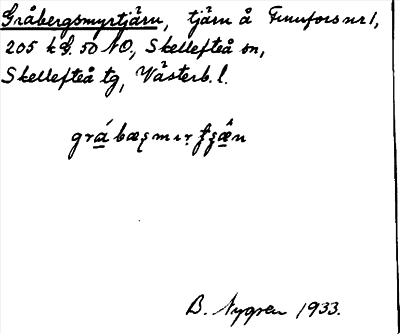 Gråbergsmyrtjärn, tjärn å Finnfors nr 1,
205 kv. 50 NO, Skellefteå sn,
Skellefteå tg, Västerb. l.
B. Nygren 1933.